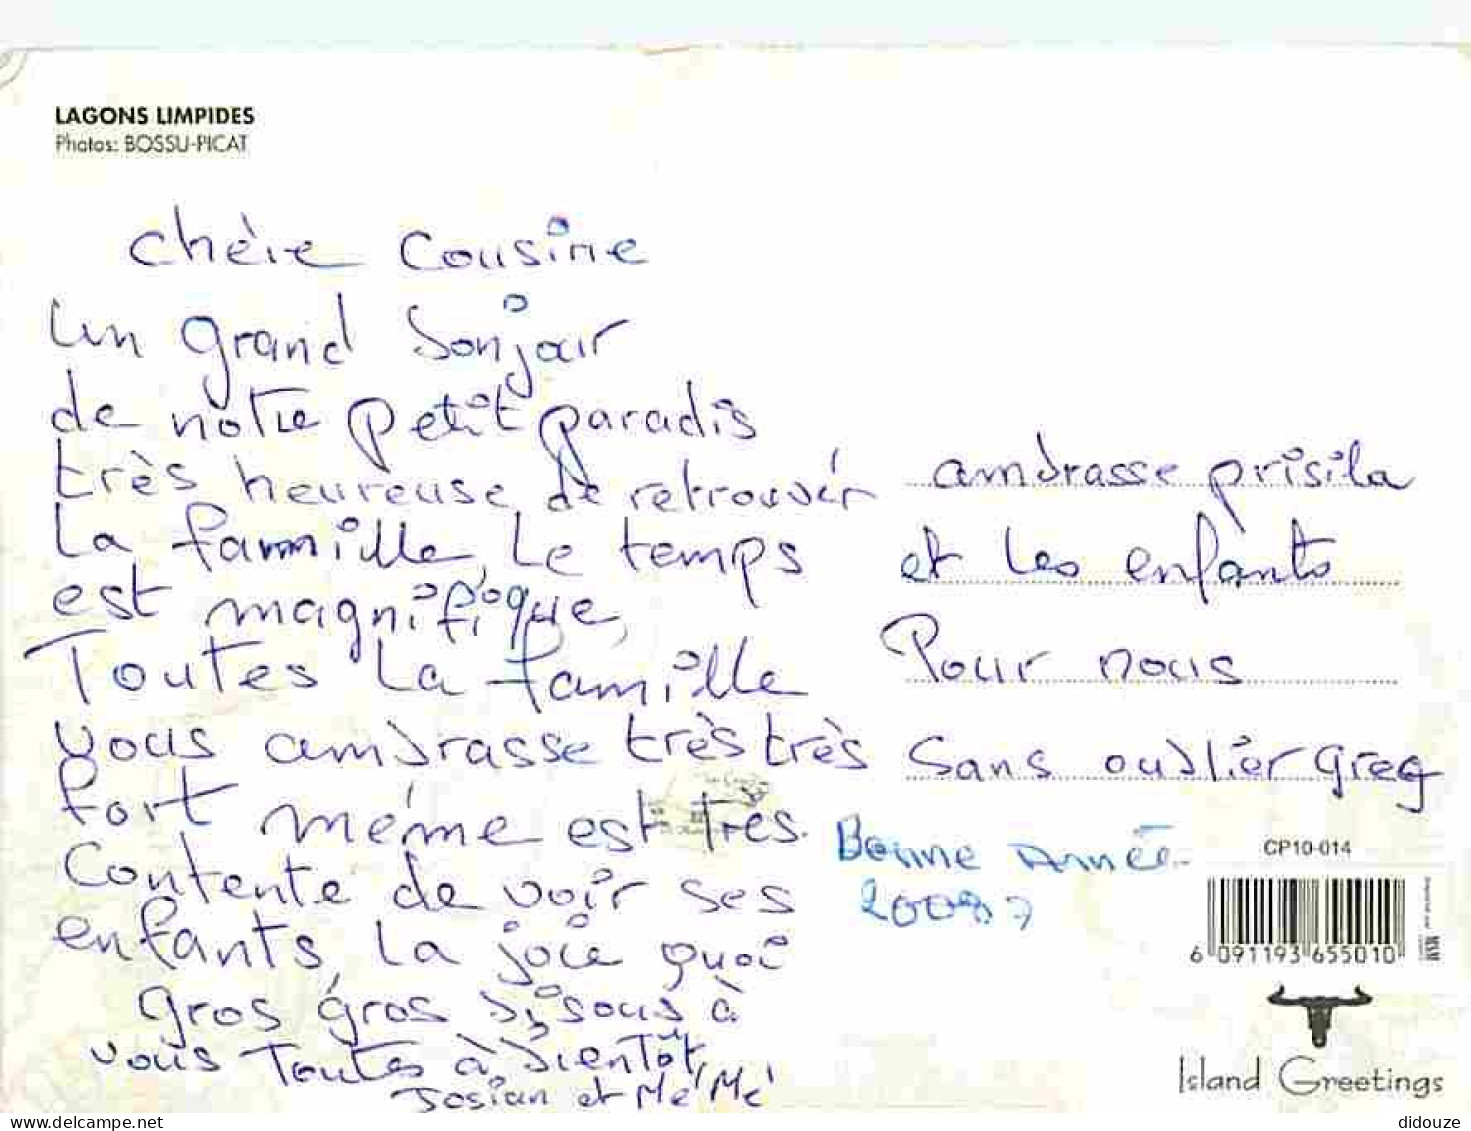 LAGONS LIMPIDES
Photos: BOSSU-PICAT
Chère Cousine
Un grand bonjour
de notre petit paradis
très heureuse de retrouvér
La famille, Le temps
est magnifique,
Toutes La famille
vous ambrasse très très
fort méme est très
Contente de voir ses
enfants, La joie quoi
gros gros bisous à
vous Toutes à bientôt,
Josian et Mé Mé
ambrasse prisila
et les enfants
Pour nous
Sans oublier greg
Bonne Année
CP10-014
6 091193 655010
Island Greetings
didouze